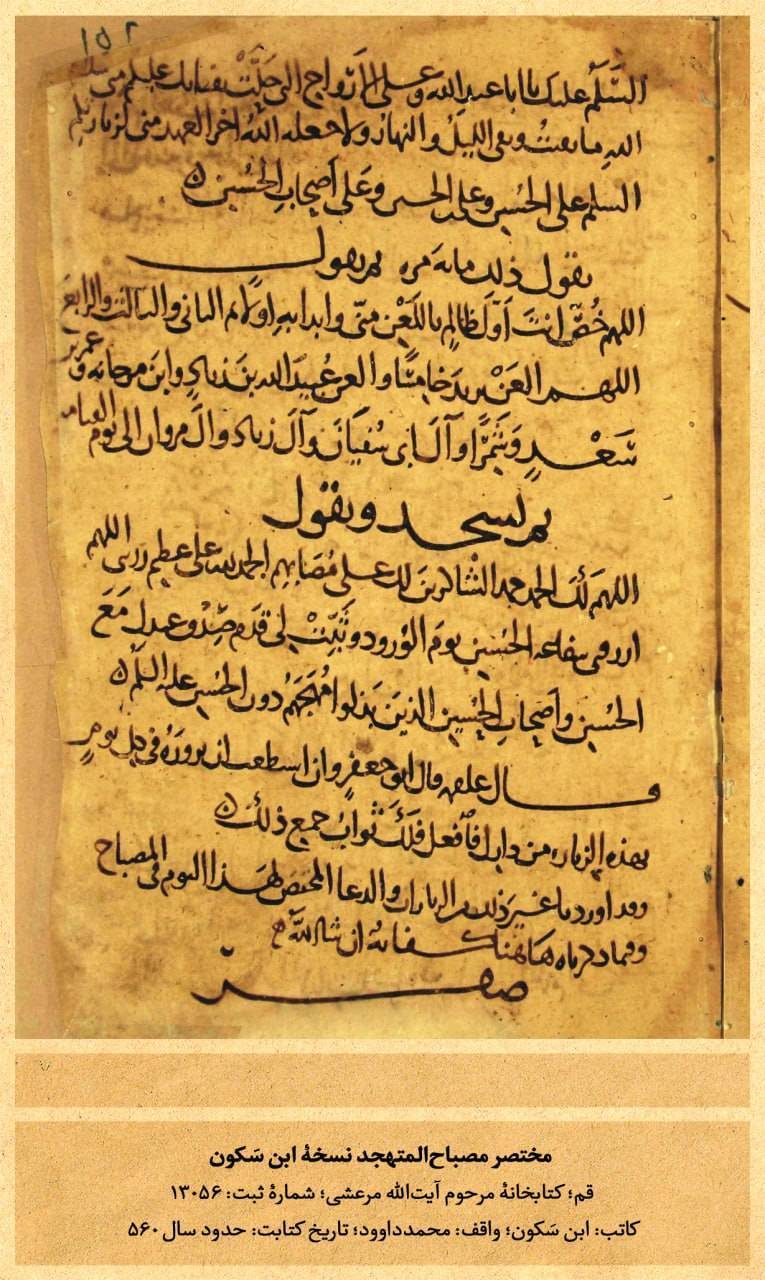 ١٥٢
السَّلَم عليك يا ابا عبدِ الله وعلى الارْواحِ التى حَلَّتْ بفنايك عليكم منى سلام
اللهِ ما بقيتُ وبقى الليلُ والنهارُ ولا جعله اللهُ اخر العهد منى لزيارتكم
السلم على الحُسَينِ وعلى على بن الحسين وعَلى أصحابِ الحُسَينِ
يقول ذلك مايه مره ثم يقول
اللهم خُصَّ انتَ اوّلَ ظالمٍ باللَعْنِ منّى وابدا بهِ اولًا ثم الثانى والثالث والرابع
اللهم العَنْ يزيدَ خامسًا والعن عُبيدَ الله بنَ زيادٍ وابنَ مرجانه وعمر بن
سَعْدٍ وشمرًا وآلَ ابى سُفيَانَ وآلَ زيادٍ وآل مروان الى يوم القيامه
ثم تسجد وتقول
اللهم لَكَ الحمد حمد الشاكرينَ لك على مُصَابِهم الحمد لله على عظيم رزيتى اللهم
ارزقنى شفاعه الحُسَينِ يومَ الوُرودِ وثَبِّتْ لى قدَم صِدْقٍ عندك مَعَ
الحُسين واَصحابِ الحُسينِ الذينَ بَذلوا مُهَجَهُم دونَ الحُسين عليه السلم
قال علقمه قال ابو جعفرٍ وان استطعت ان تزورَهُ فى كل يومٍ
بهذه الزياره من دارك فافعل فلَكَ ثوابُ جميع ذلك
وقد اوردنا غيرَ ذلك من الزيارات والدعا المختص بهذا اليوم فى المصباح
وفيما ذكرناه هاهنا كفايهٌ ان شا اللهُ
صفر
مختصر مصباح‌المتهجد نسخهٔ ابن سَکون
قم؛ کتابخانهٔ مرحوم آیت‌الله مرعشی؛ شمارهٔ ثبت: ۱۳۰۵۶
کاتب: ابن سَکون؛ واقف: محمدداوود؛ تاریخ کتابت: حدود سال ۵۶۰